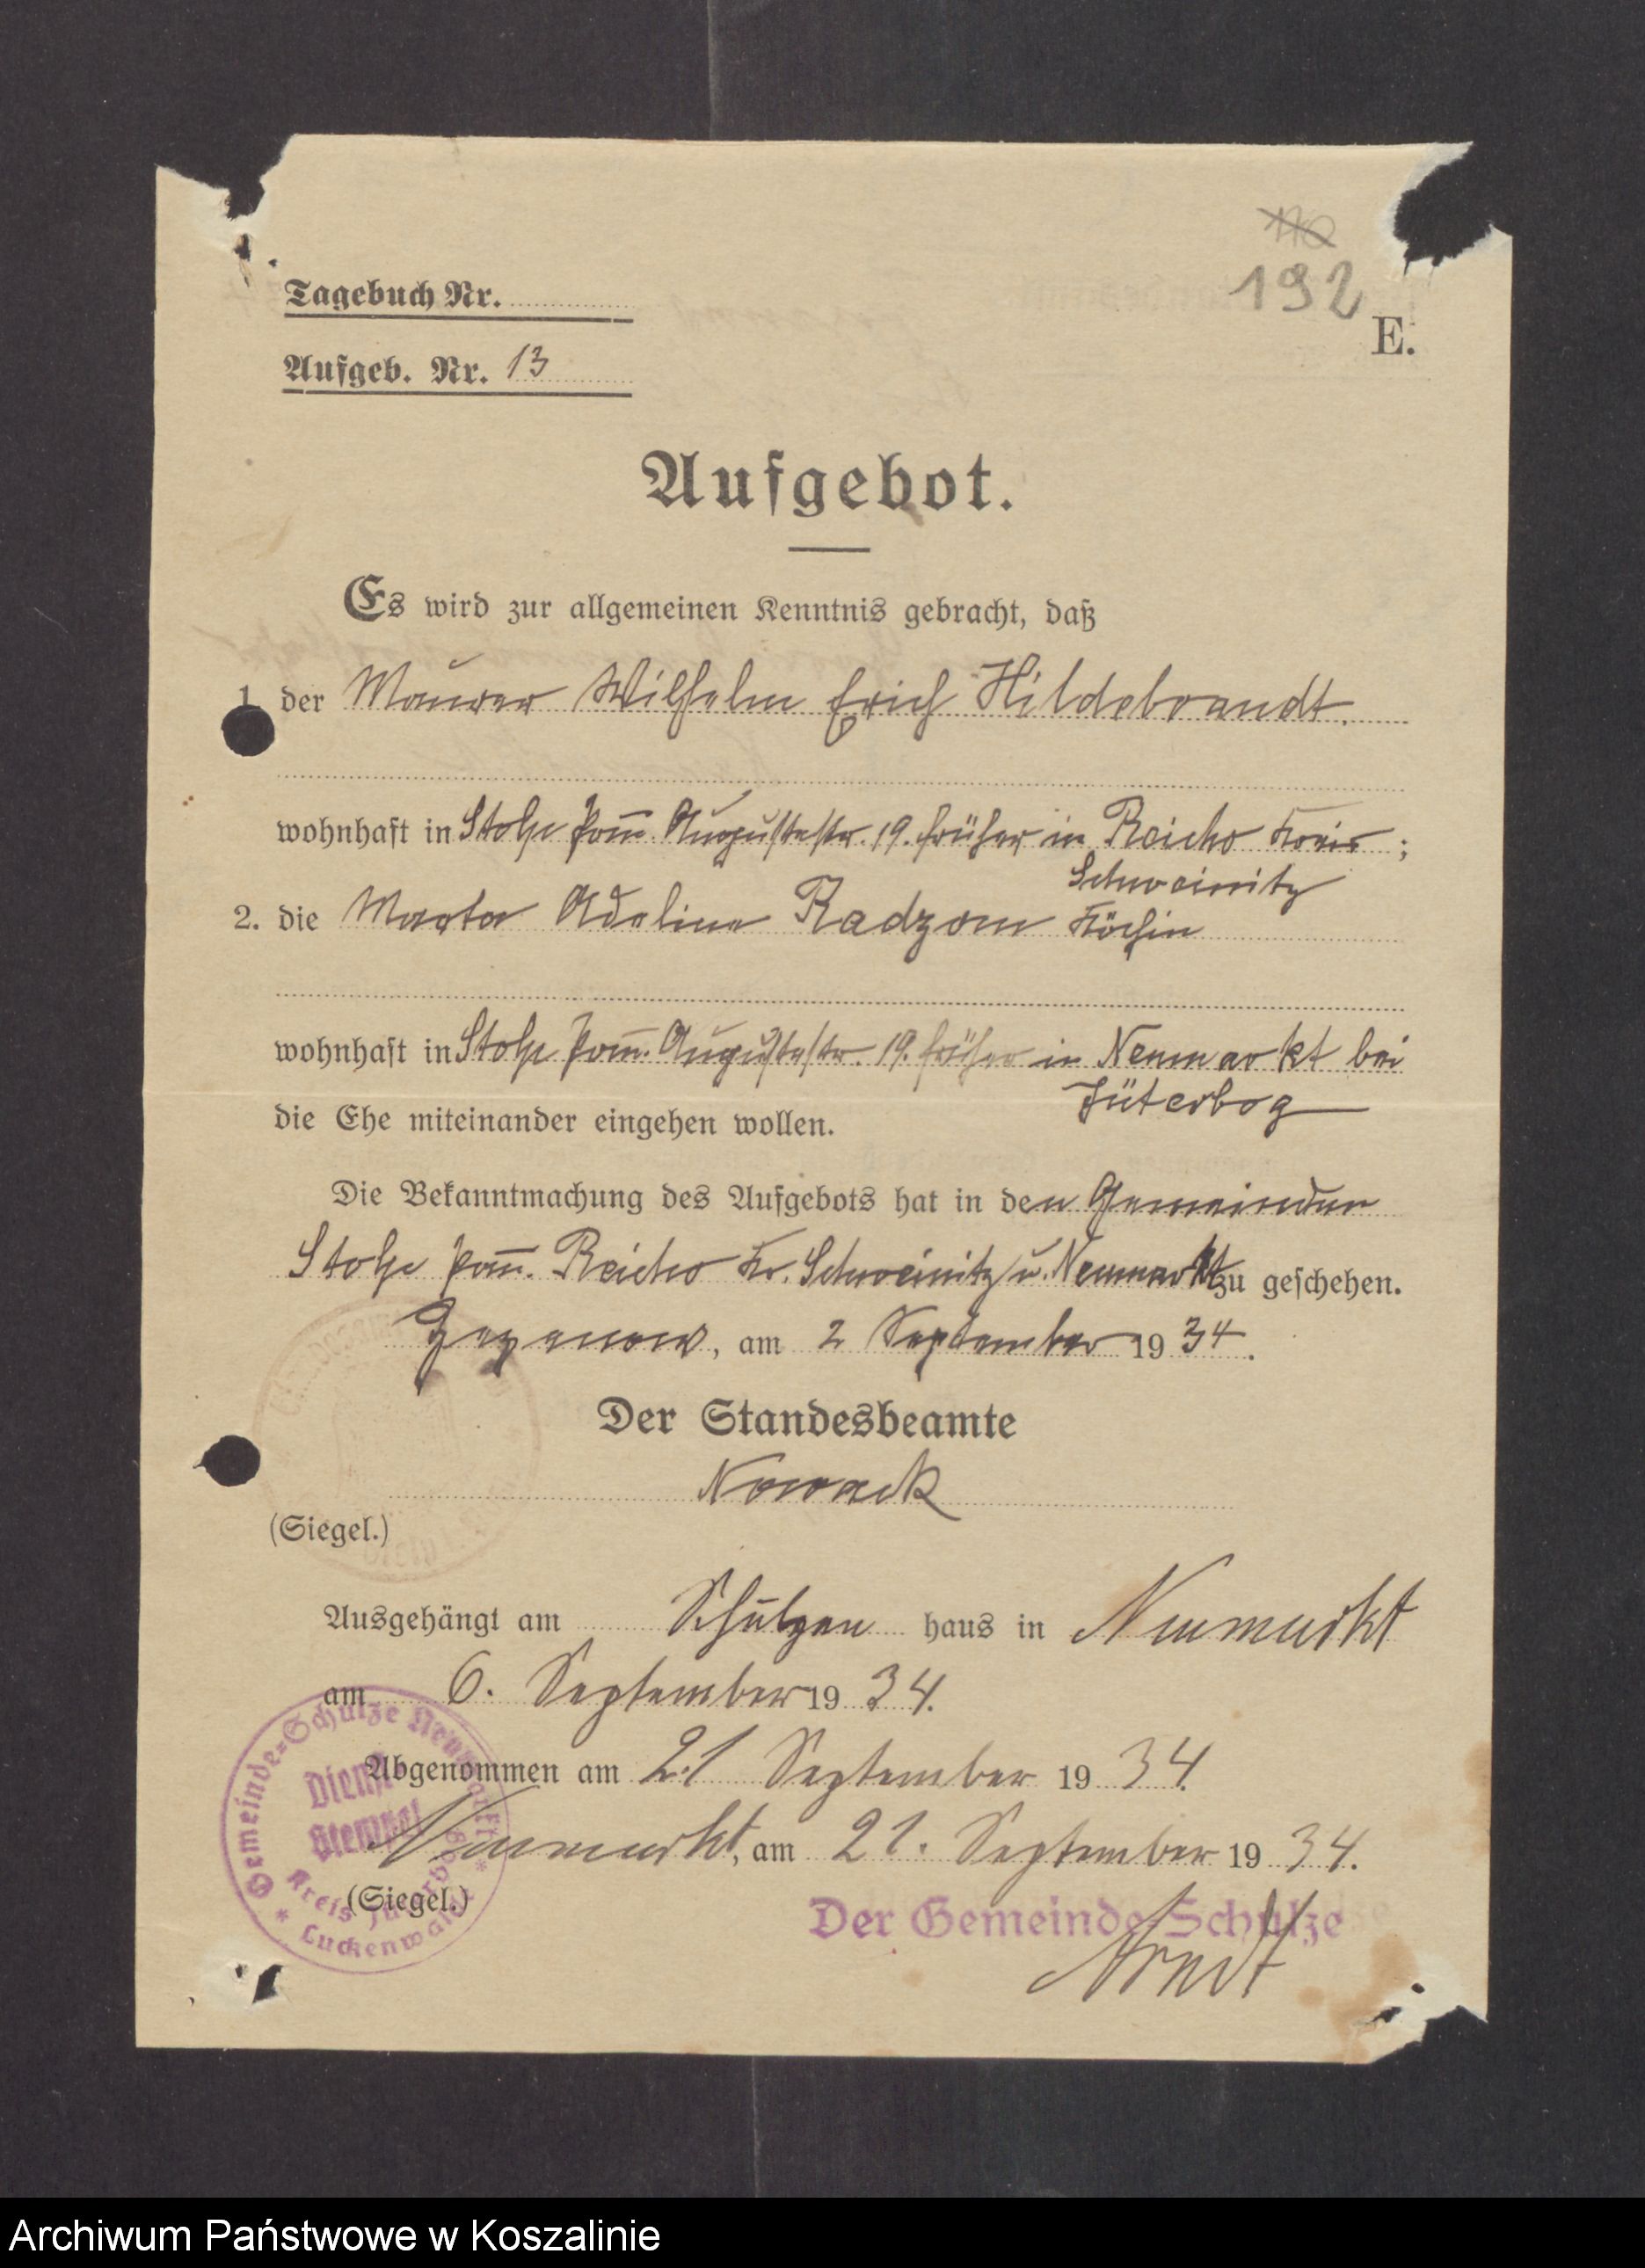 192
Tagebuch Nr.
E.
Aufgeb. Nr. 13
Aufgebot.
Es wird zur allgemeinen Kenntnis gebracht, daß
1. der Maurer Wilhelm Erich Hildebrandt.
wohnhaft in Stolp Pom. Augustastr. 19. früher in Reicho Kreis ;
Schweinitz
2. die Marta Adeline Radzom Köchin
wohnhaft in Stolp Pom. Augustastr. 19. früher in Neumarkt bei
Jüterbog
die Ehe miteinander eingehen wollen.
Die Bekanntmachung des Aufgebots hat in den Gemeinden
Stolp Pom. Reicho Kr. Schweinitz u. Neumarkt zu geschehen.
Zezenow, am 2 September 1934.
Der Standesbeamte
Nowack
(Siegel.)
Ausgehängt am Schulzen haus in Neumarkt
am 6. September 1934.
Abgenommen am 21 September 1934.
Neumarkt, am 21. September 1934.
(Siegel.)
Gemeinde-Schulze Neumarkt
Dienst
Stempel
Kreis Jüterbog
* Luckenwalde *
Der Gemeinde-Schulze
Arndt
Archiwum Państwowe w Koszalinie